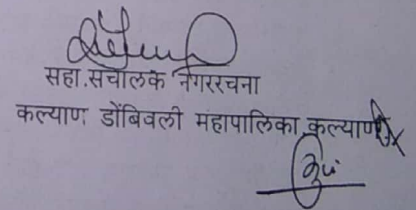 सहा.संचालक नगररचना
कल्याण डोंबिवली महापालिका,कल्याण